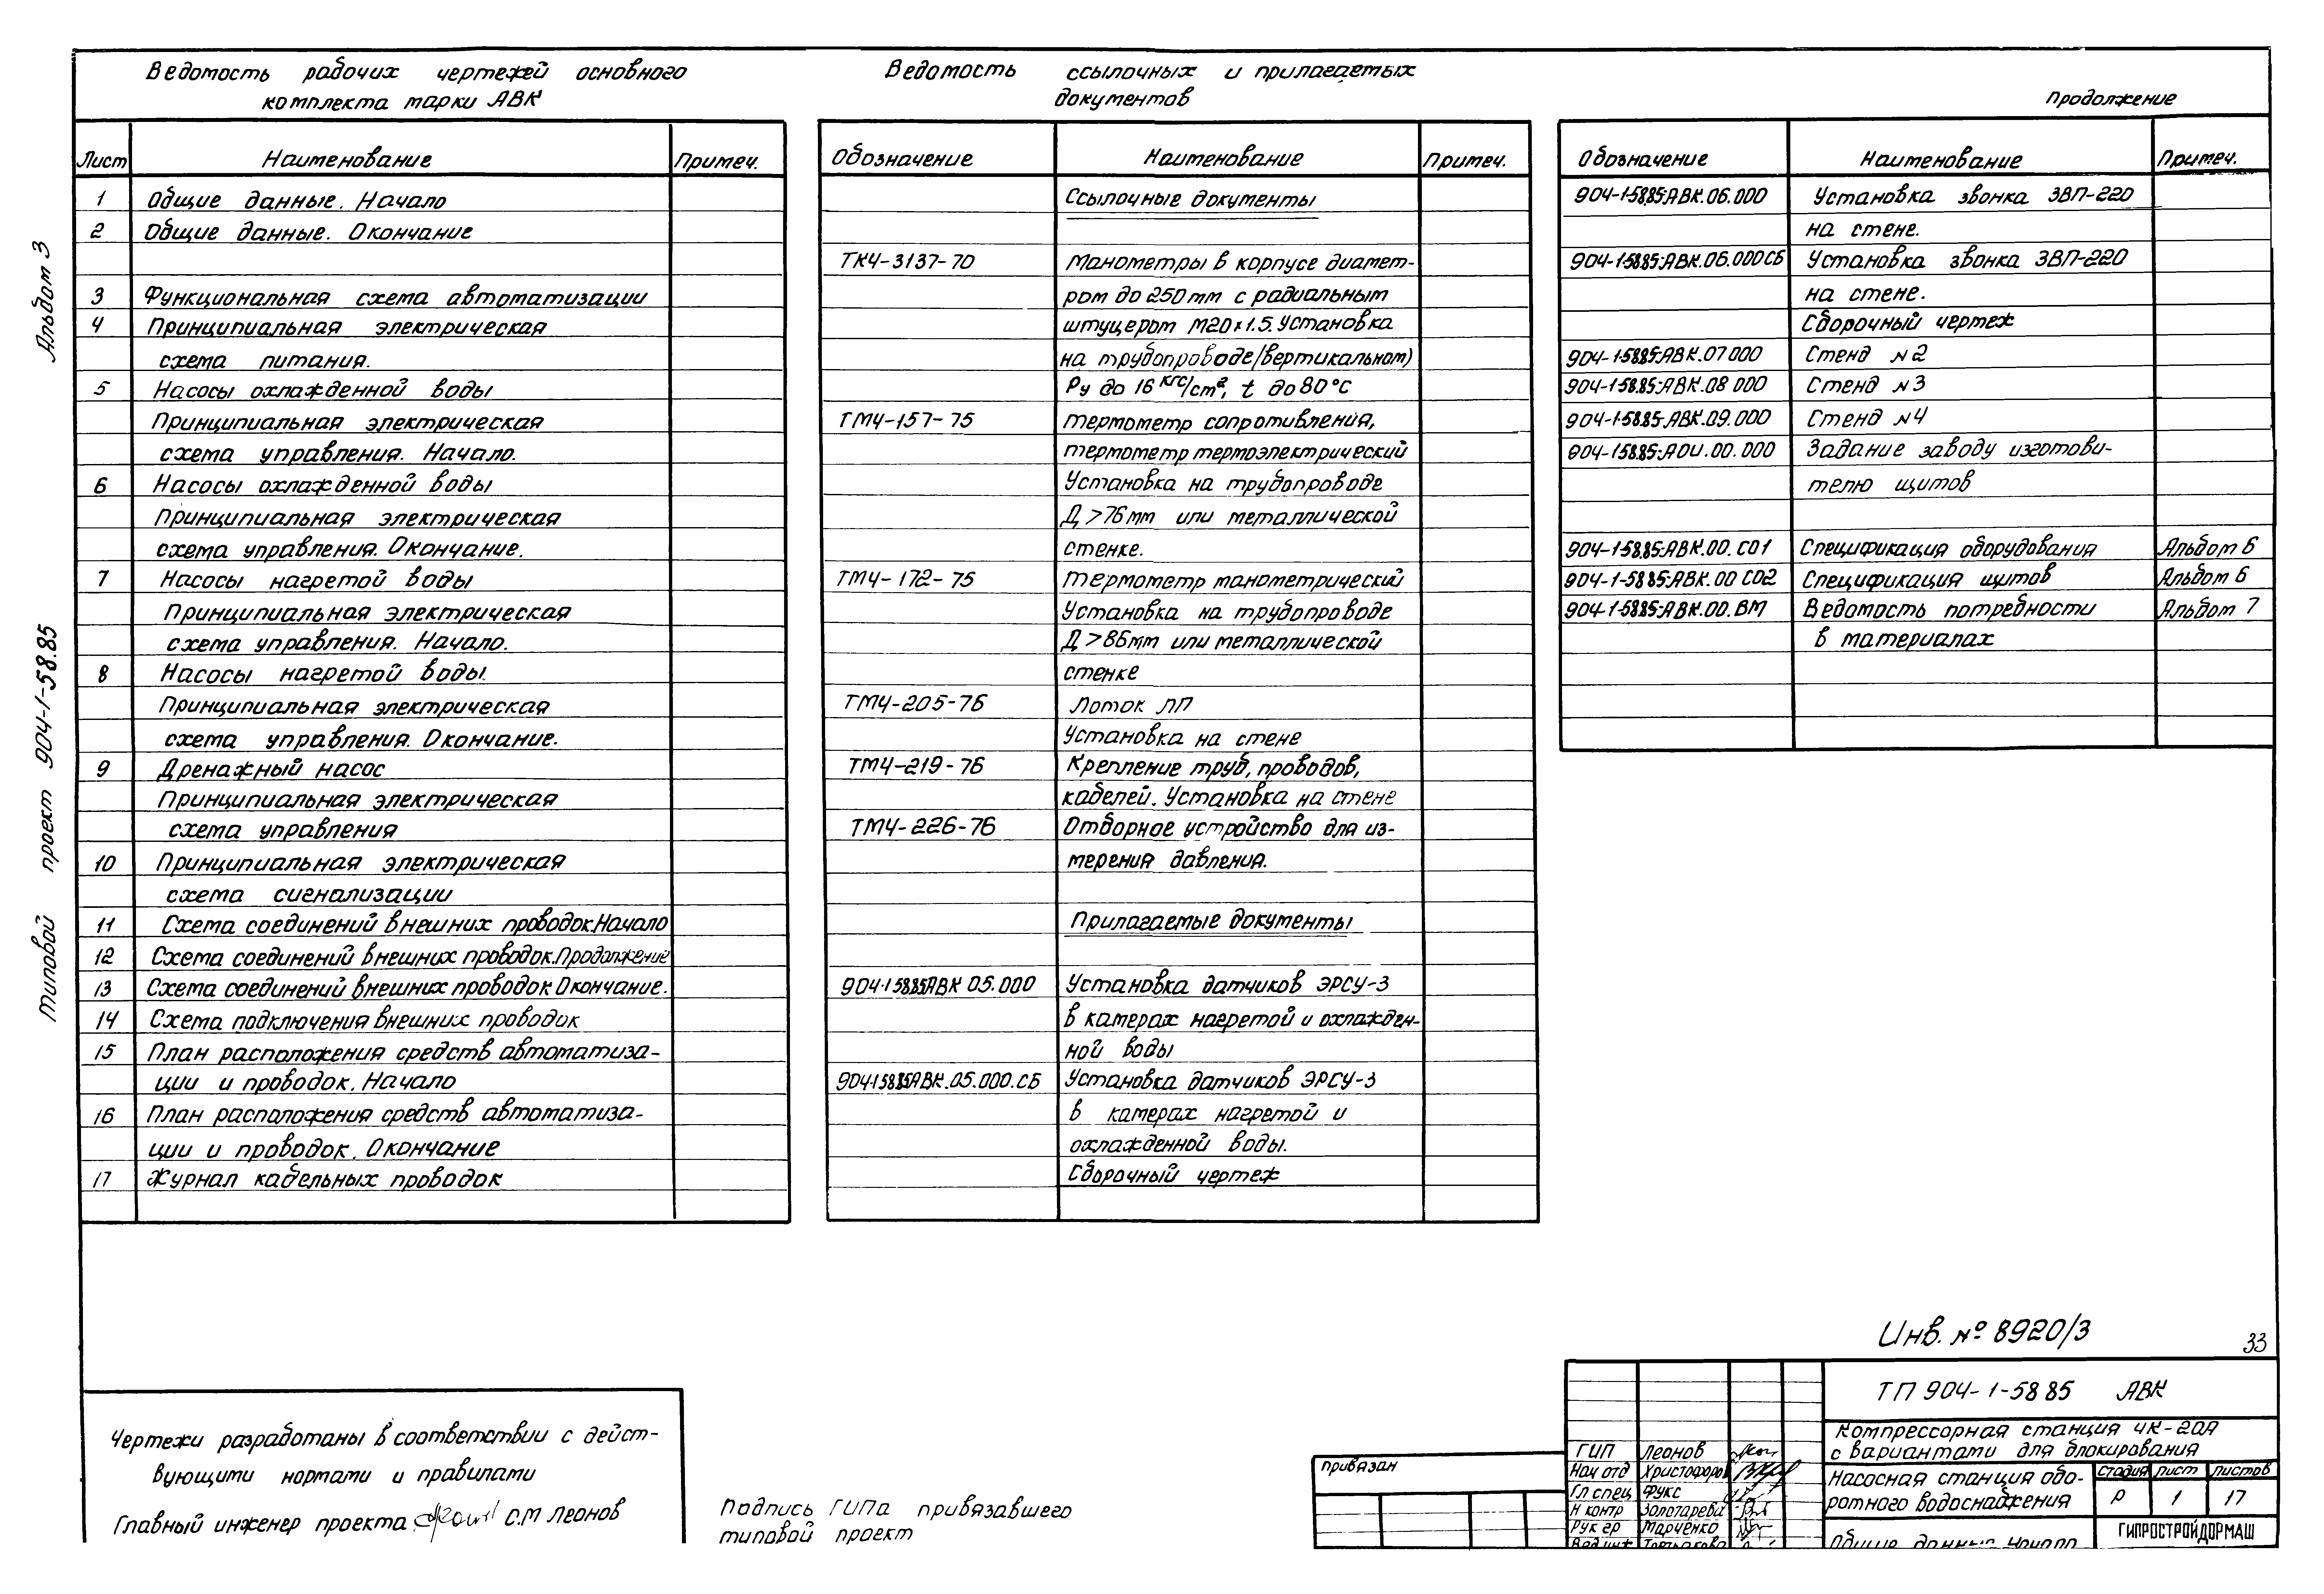 Ведомость рабочих чертежей основного
комплекта марки АВК
Лист Наименование Примеч.
1 Общие данные. Начало
2 Общие данные. Окончание
3 Функциональная схема автоматизации
4 Принципиальная электрическая
схема питания.
5 Насосы охлажденной воды
Принципиальная электрическая
схема управления. Начало.
6 Насосы охлажденной воды
Принципиальная электрическая
схема управления. Окончание.
7 Насосы нагретой воды
Принципиальная электрическая
схема управления. Начало.
8 Насосы нагретой воды.
Принципиальная электрическая
схема управления. Окончание.
9 Дренажный насос
Принципиальная электрическая
схема управления
10 Принципиальная электрическая
схема сигнализации
11 Схема соединений внешних проводок.Начало
12 Схема соединений внешних проводок.Продолжение
13 Схема соединений внешних проводок Окончание.
14 Схема подключения внешних проводок
15 План расположения средств автоматиза-
ции и проводок. Начало
16 План расположения средств автоматиза-
ции и проводок. Окончание
17 Журнал кабельных проводок
Ведомость ссылочных и прилагаемых
документов
Обозначение Наименование Примеч.
Ссылочные документы
ТК4-3137-70 Манометры в корпусе диамет-
ром до 250мм с радиальным
штуцером М20×1.5. Установка
на трубопроводе/вертикальном)
Ру до 16 кгс/см², t до 80°С
ТМ4-157-75 термометр сопротивления,
термометр термоэлектрический
Установка на трубопроводе
Д >76мм или металлической
стенке.
ТМ4-172-75 термометр манометрический
Установка на трубопроводе
Д >86мм или металлической
стенке
ТМ4-205-76 Лоток ЛП
Установка на стене
ТМ4-219-76 Крепление труб, проводов,
кабелей. Установка на стене
ТМ4-226-76 Отборное устройство для из-
мерения давления.
Прилагаемые документы
904-1-58.85АВК 05.000 Установка датчиков ЭРСУ-3
в камерах нагретой и охлажден-
ной воды
904-1-58.85АВК.05.000.СБ Установка датчиков ЭРСУ-3
в камерах нагретой и
охлажденной воды.
Сборочный чертеж
Продолжение
Обозначение Наименование Примеч.
904-1-58.85-АВК.06.000 Установка звонка ЗВП-220
на стене.
904-1-58.85-АВК.06.000СБ Установка звонка ЗВП-220
на стене.
Сборочный чертеж
904-1-58.85-АВК.07000 Стенд №2
904-1-58.85-АВК.08 000 Стенд №3
904-1-58.85-АВК.09.000 Стенд №4
904-1-58.85-АОИ.00.000 Задание заводу изготови-
телю щитов
904-1-58.85-АВК.00.СО1 Спецификация оборудования Альбом 6
904-1-58.85-АВК.00 СО2 Спецификация щитов Альбом 6
904-1-58.85-АВК.00.ВМ Ведомость потребности Альбом 7
в материалах
Альбом 3
Типовой проект 904-1-58.85
Чертежи разработаны в соответствии с дейст-
вующими нормами и правилами
Главный инженер проекта О.М Леонов
Подпись ГИПа привязавшего
типовой проект
Инв. № 8920/3
33
привязан
ГИП Леонов
Нач отд Христофоров
Гл спец Фукс
Н контр Золотарева
Рук гр Марченко
Вед инж
ТП 904-1-58 85 АВК
Компрессорная станция 4К-20А
с вариантами для блокирования
Насосная станция обо-
ротного водоснабжения
стадия лист листов
Р 1 17
Общие данные Начало
ГИПРОСТРОЙДОРМАШ